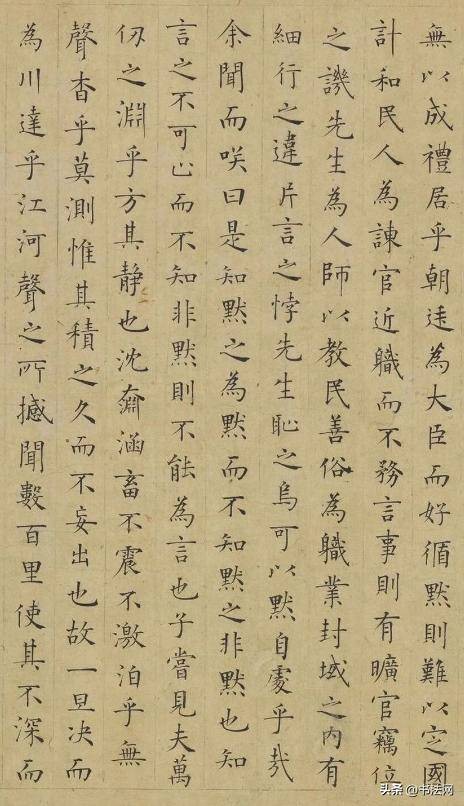 無以成禮居乎朝廷為大臣而好循默則難以定國
計和民人為諫官近職而不務言事則有曠官竊位
之譏先生為人師以教民善俗為職業封域之内有
細行之違片言之悖先生恥之烏可以默自處乎哉
余聞而咲曰是知默之為默而不知默之非默也知
言之不可亡而不知非默則不能為言也子嘗見夫萬
仞之淵乎方其静也沈奫涵畜不震不激泊乎無
聲杳乎莫測惟其積之久而不妄出也故一旦决而
為川達乎江河聲之所撼聞數百里使其不深而
头条 @书法网